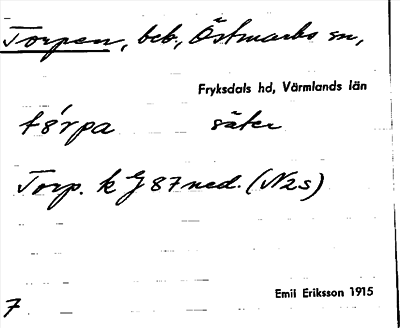 Torpen, beb., Östmarks sn,
Fryksdals hd, Värmlands län
tórpa säter
Torp. k G 87 ned. (N2s)
Emil Eriksson 1915
7